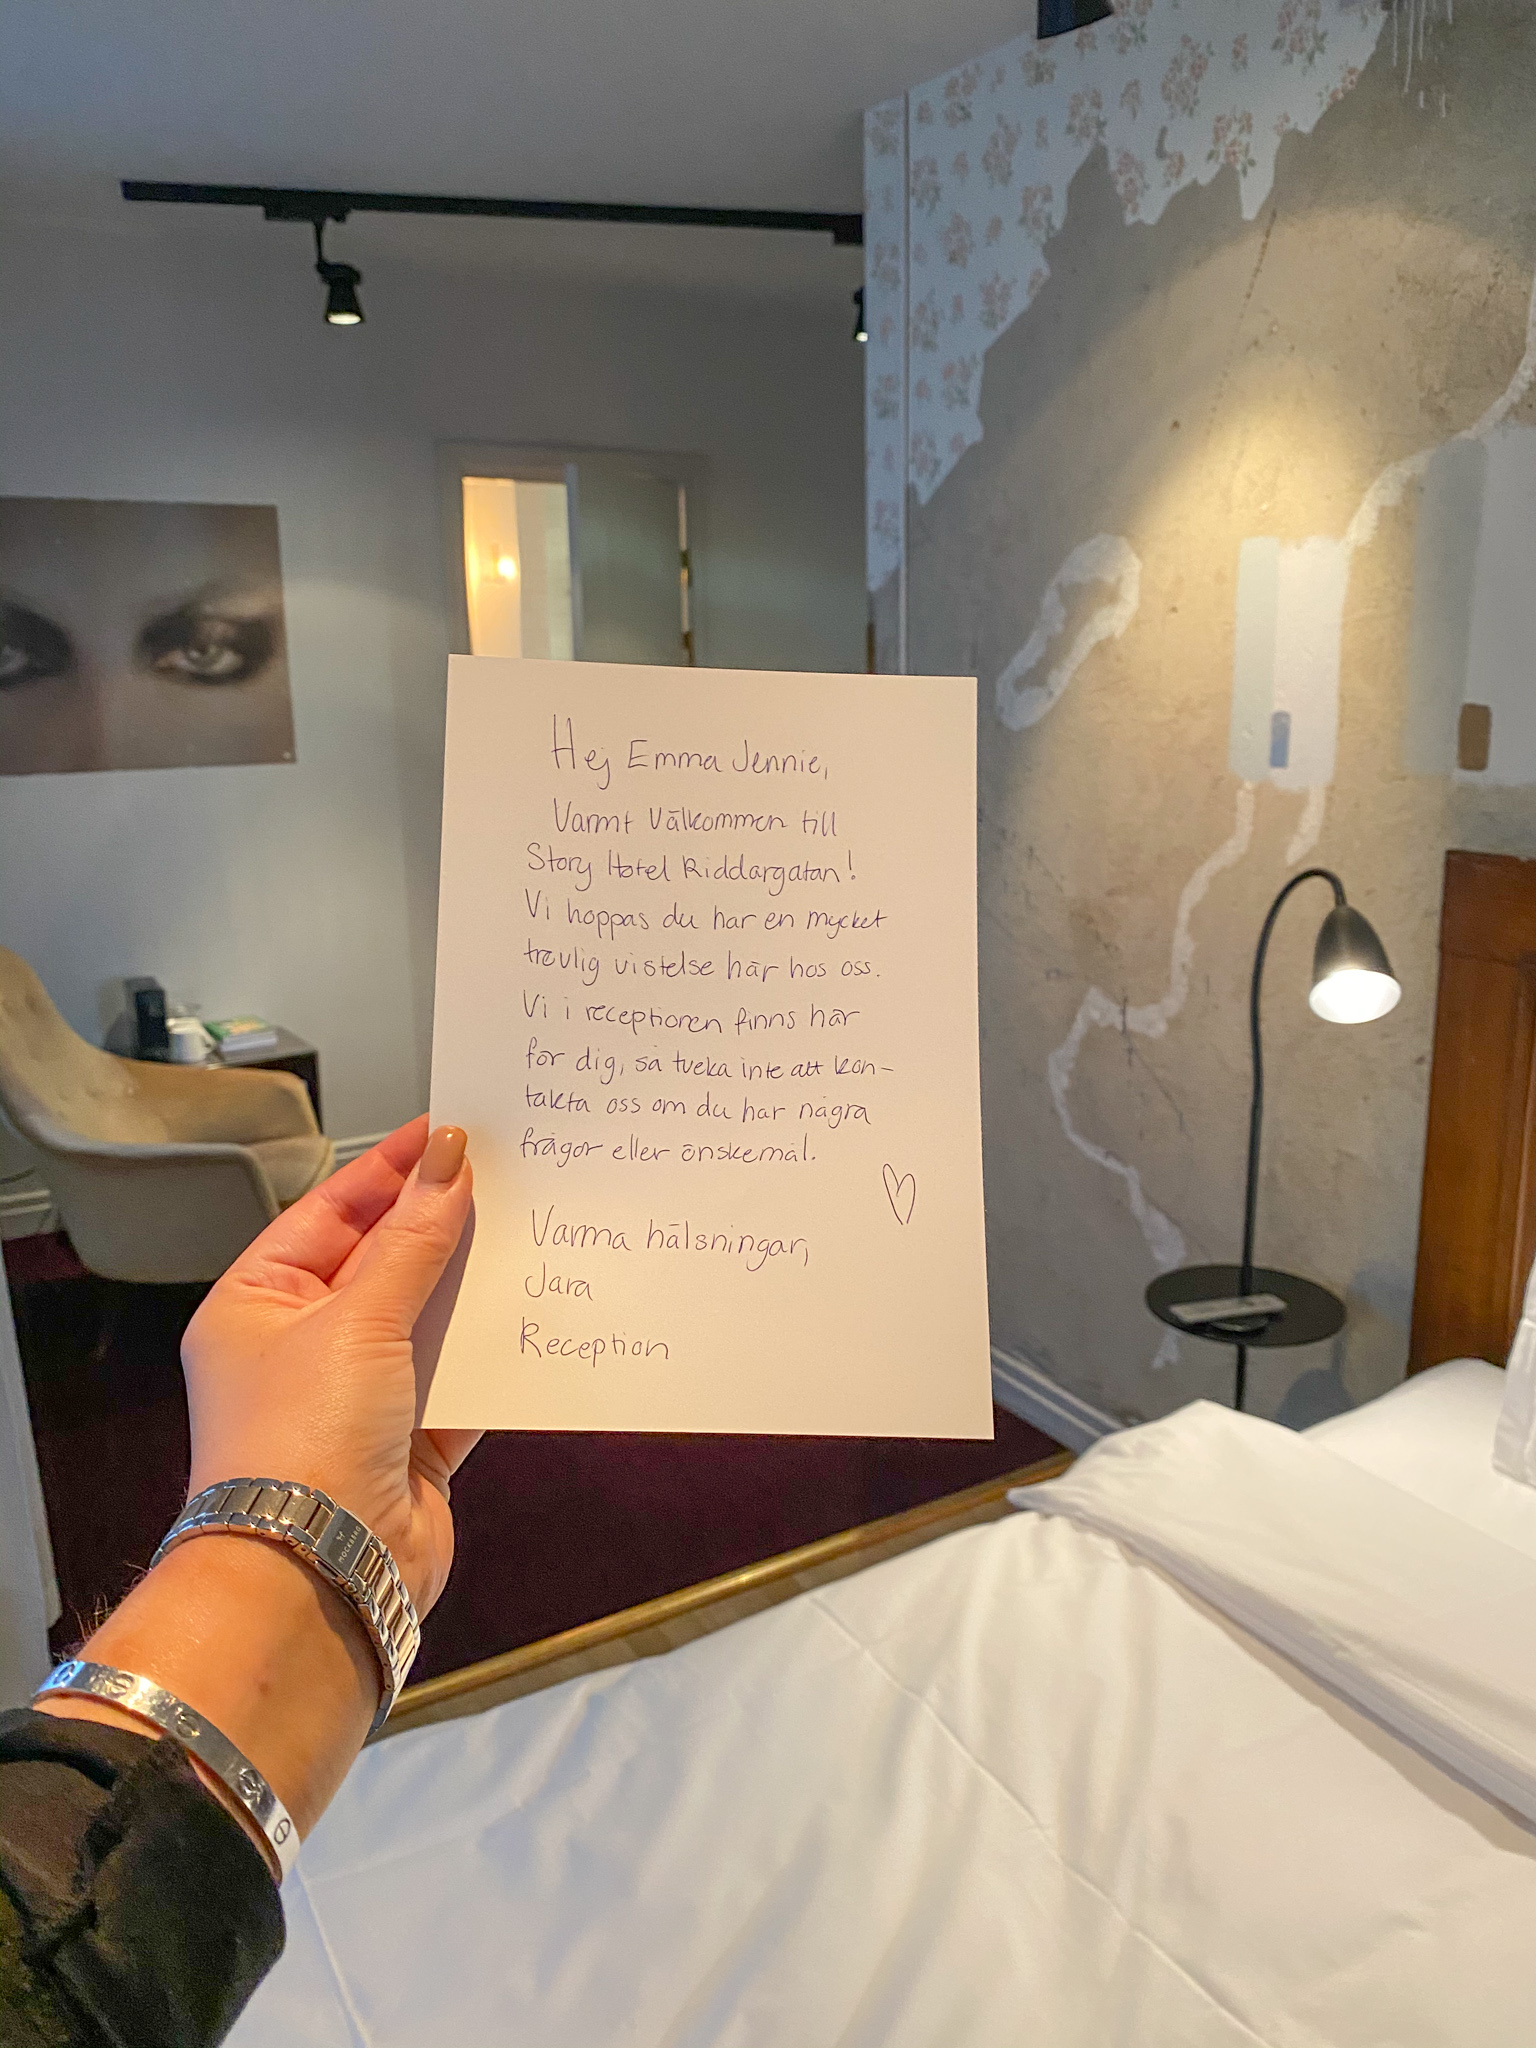 Hej Emma Jennie,
Varmt Välkommen till
Story Hotel Riddargatan!
Vi hoppas du har en mycket
trevlig vistelse här hos oss.
Vi i receptionen finns här
för dig, så tveka inte att kon-
takta oss om du har några
frågor eller önskemål.
Varma hälsningar,
Jara
Reception
MOCKBERG